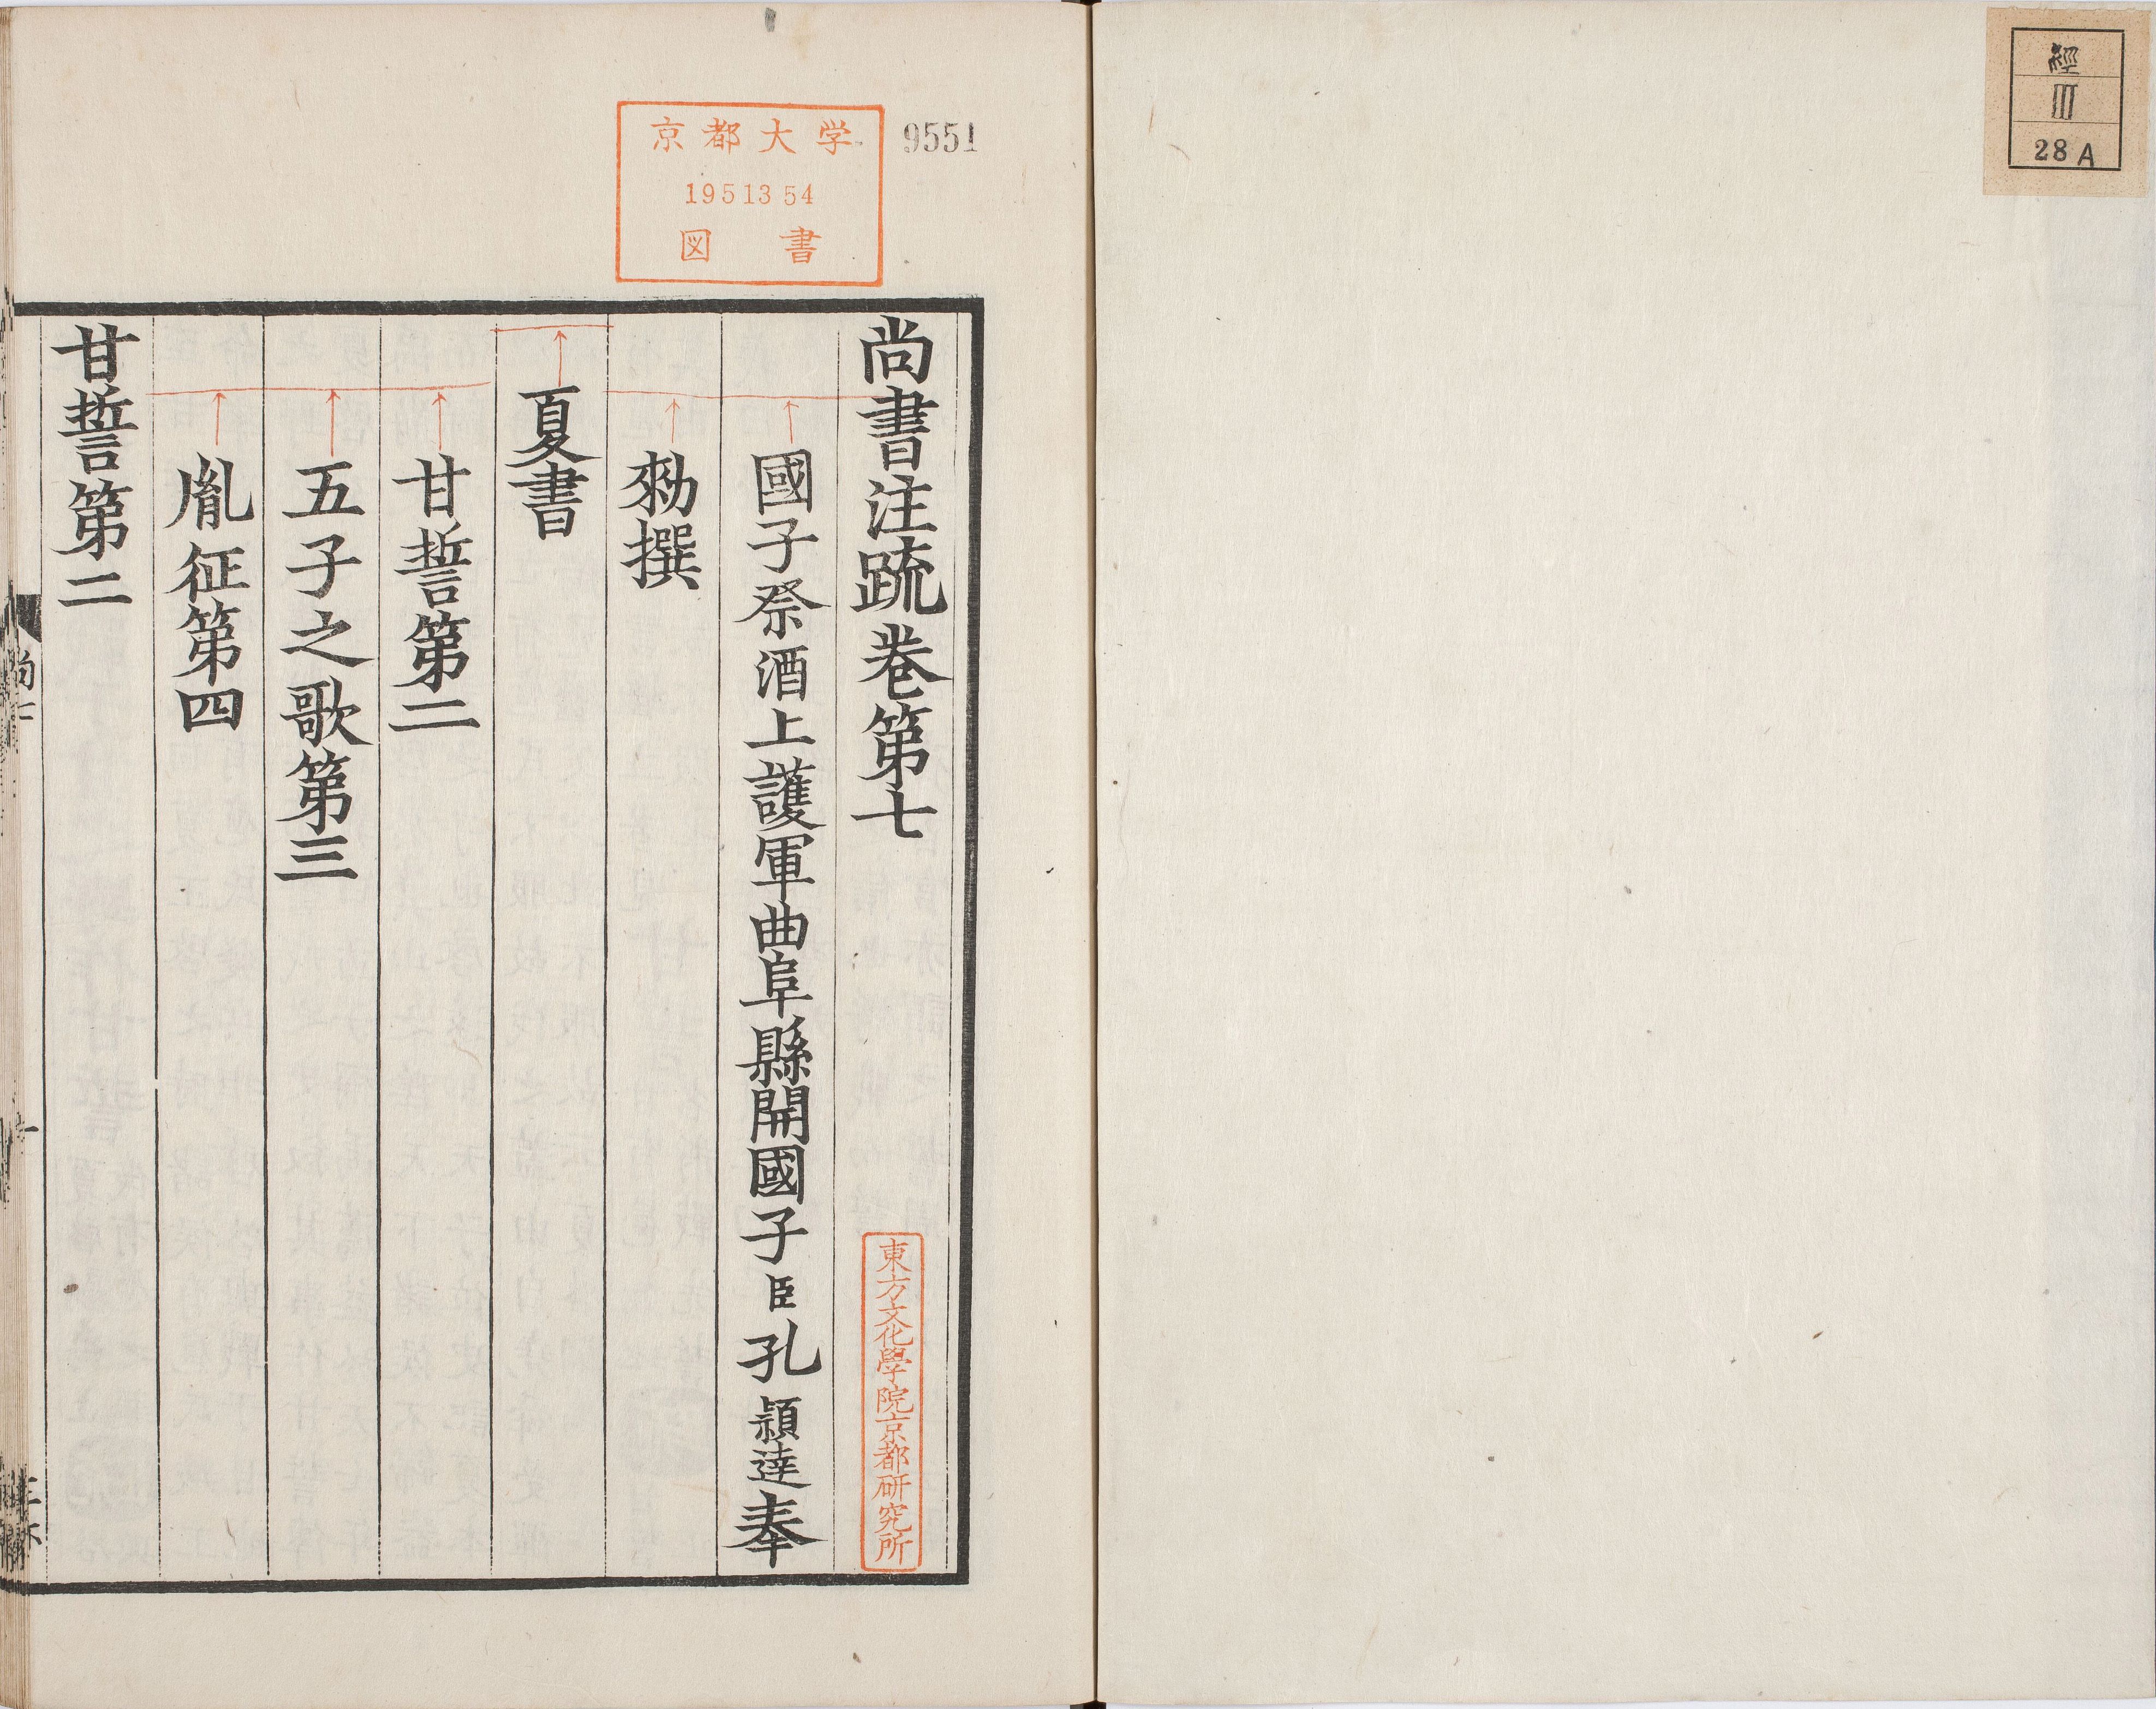 經
III
28 A
9551
京都大学
1951354
図書
尚書注疏卷第七
國子祭酒上護軍曲阜縣開國子臣孔穎達奉
勑撰
夏書
甘誓第二
五子之歌第三
胤征第四
甘誓第二
東方文化學院京都研究所
尚七
一